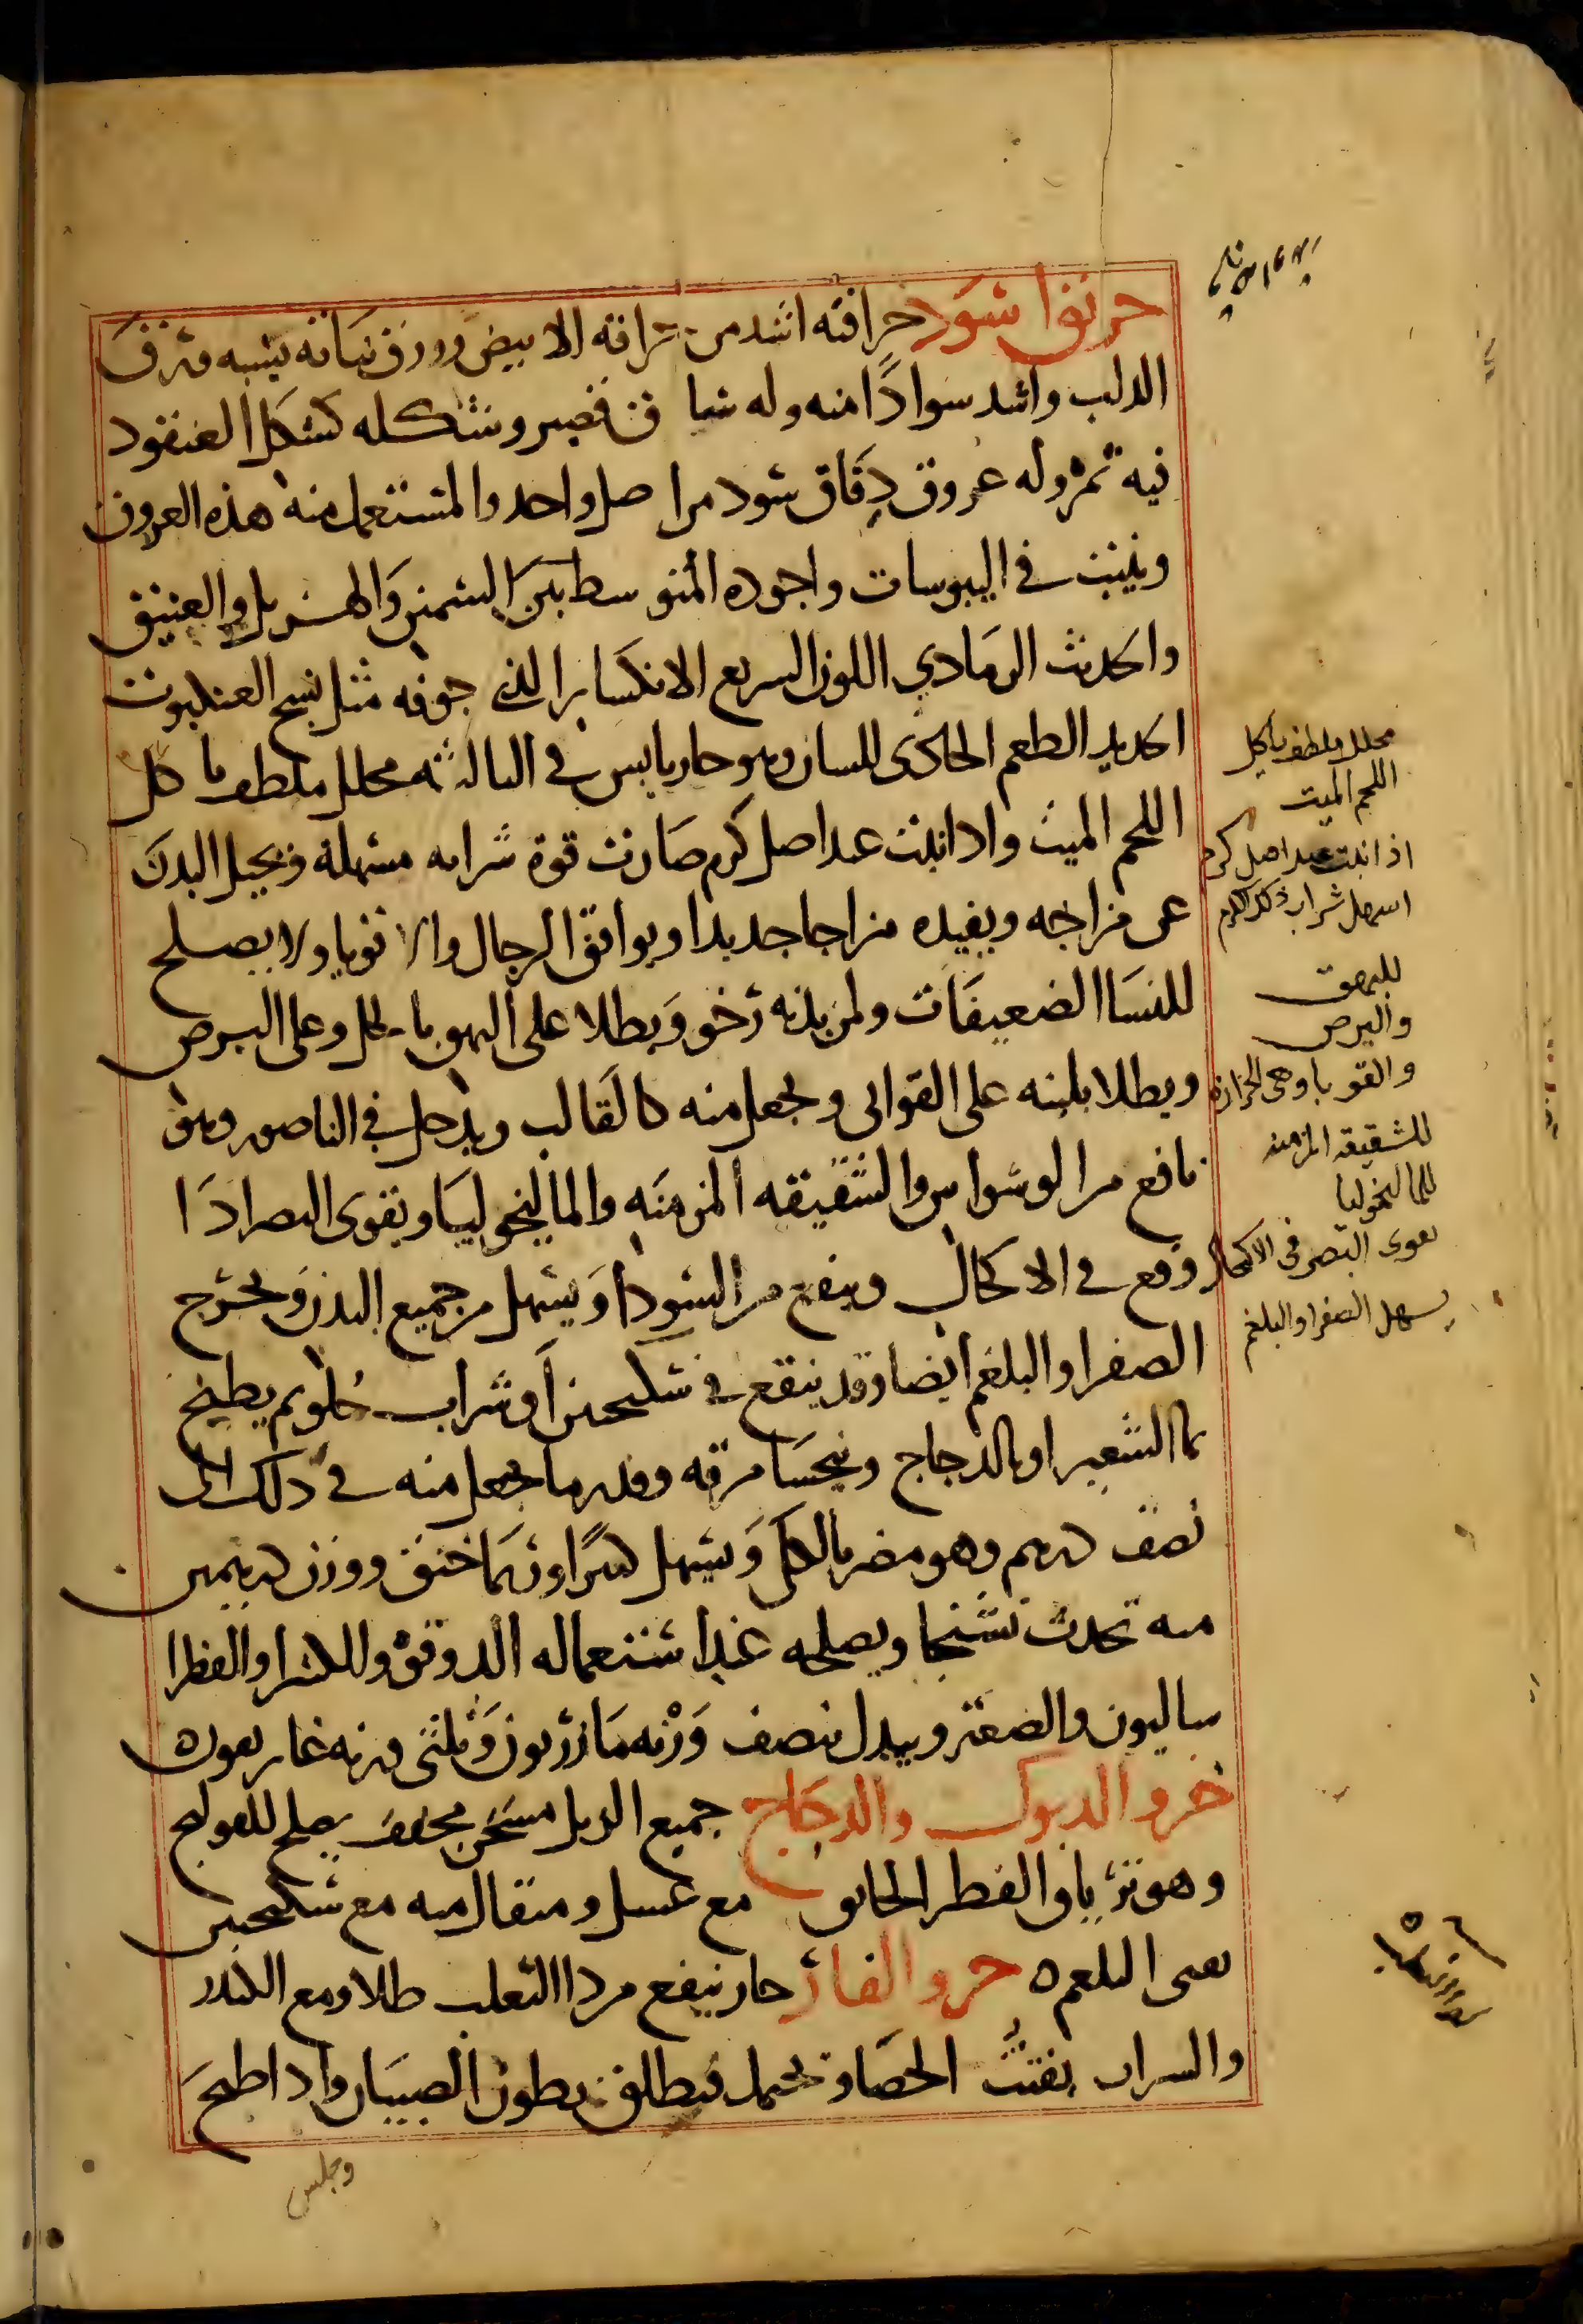 خربق اسود حرافته اشد من حرافة الابيض وورق نباته يشبه ورق
الدلب واشد سوادًا منه وله ساق قصير وشكله كشكل العنقود
فيه ثمره وله عروق دقاق سود من اصل واحد والمستعمل منه هذه العروق
وينبت في اليبوسات واجوده المتوسط بين السمين والهزيل والعتيق
والحديث الرمادي اللون السريع الانكسار الذي جوفه مثل نسج العنكبوت
الحديد الطعم الحاذى للسان وهو حار يابس في الثالثه محلل ملطف ياكل
اللحم الميت واذا نبت عند اصل كرم صارت قوة شرابه مسهلة ويحيل البدن
عن مزاجه ويفيده مزاجا جديدا ويوافق الرجال والاقويا ولا يصلح
للنسا الضعيفات ولمن بدنه رخو ويطلا على البهق بالخل وعلى البرص
ويطلا بلبنه على القوابى ويجعل منه كالقالب ويدخل في الناصور وهو
نافع من الوسواس والشقيقه المزمنه والماليخوليا ويقوى البصر اذا
وقع في الاكحال وينفع من السودا ويسهل من جميع البدن ويخرج
الصفرا والبلغم ايضا وقد ينقع في سكنجبين او شراب حلو ثم يطبخ
بماالشعير او بالدجاج ويحسا مرقه وقدر ما يجعل منه في ذلك الى
نصف درهم وهو مضر بالكلى ويسهل كثيرًا وربما خنق ووزن درهمين
منه تحدث تشنجا ويصلحه عند استعماله الدوقو والكثيرا والفطرا
ساليون والصعتر ويبدل بنصف وزنه مازريون وثلثى وزنه غاريقون
خرو الديوك والدجاج جميع الزبل مسخن مجفف يصلح للقولنج
وهو ترياق الفطر الخانق مع عسل ومثقال منه مع سكنجبين
يقى البلغم ه خرو الفار حار ينفع من دا الثعلب طلا ومع الكندر
والشراب يفتت الحصاة ويحمل فيطلق بطون الصبيان واذا طبخ
وجلس
محلل وملطف ياكل
اللحم الميت
اذا نبت عند اصل كرم
اسهل شراب ذلك الكرم
للبهق
والبرص
والقوبا وهى الحزازه
للشقيقه المزمنه
للماليخوليا
يقوى البصر فى الاكحال
يسهل الصفرا والبلغم